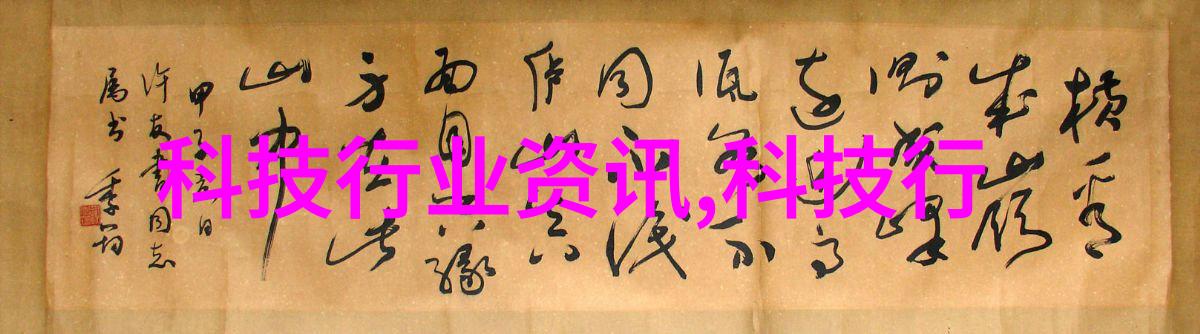 横看
成岭
侧成峰
远近高
低各不
同不识
庐山真
面目只缘
身在此
山中
许友书同志
属书
科技行业资讯,科技行